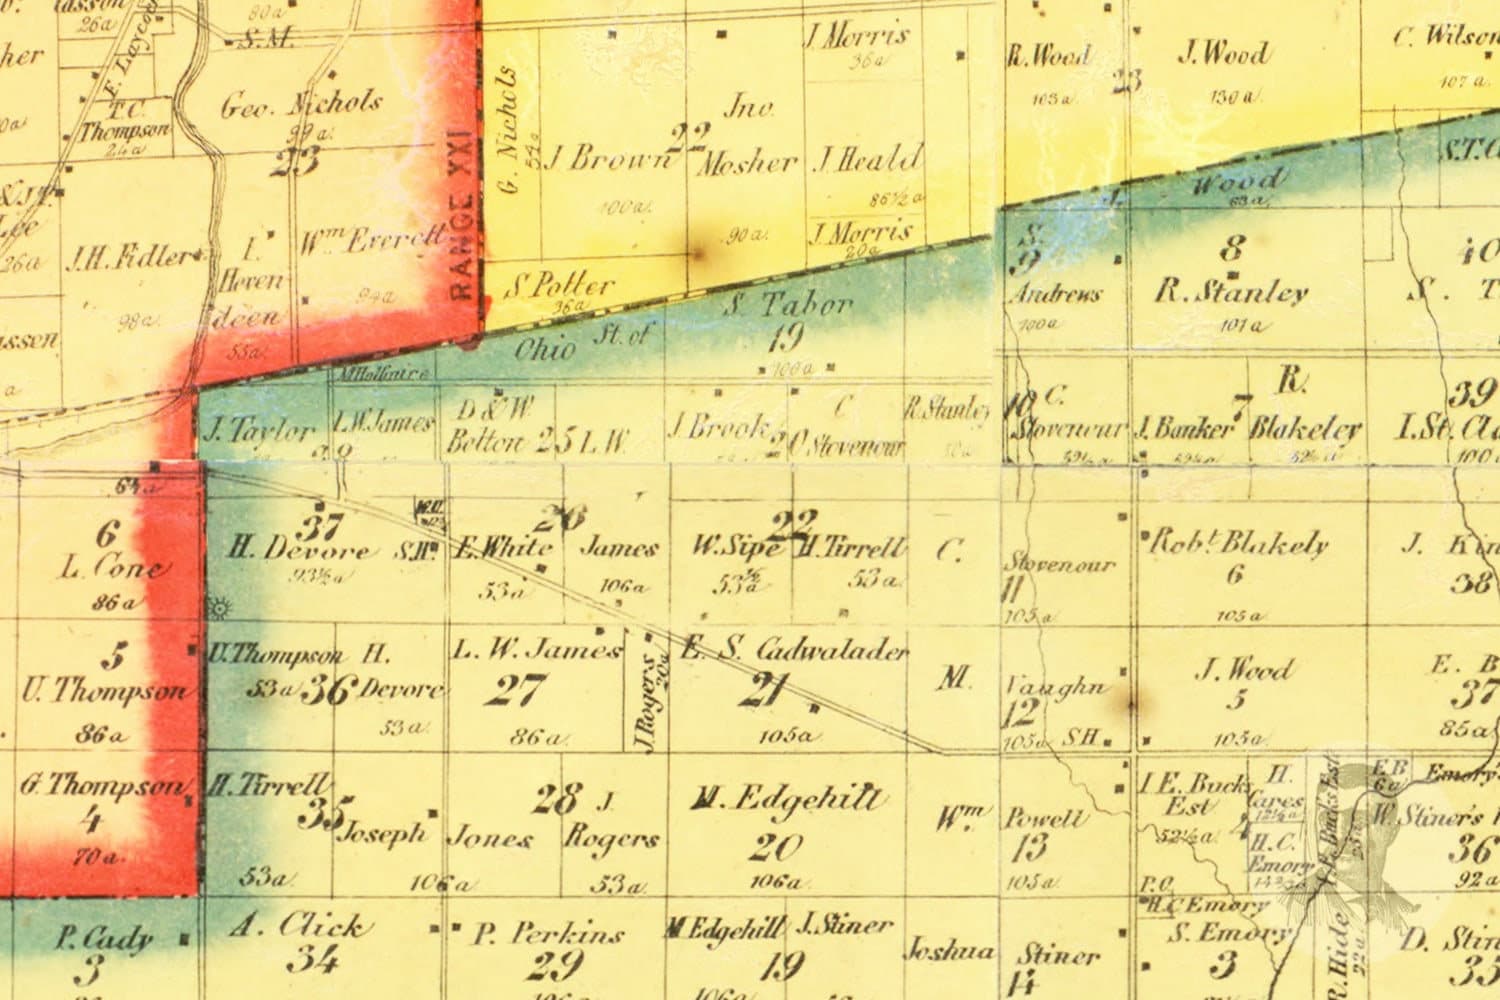 26a
80a
S.M.
F. Laycock
T.C.
Thompson
24a
Geo. Nichols
99a.
23
RANGE XXI
G. Nichols
54a
J Brown
100a.
22
Jno.
Mosher
90a.
J Morris
36a
J. Heald
86½a
J. Morris
20a
R. Wood
103a.
23
J. Wood
130a.
C. Wilson
107a
Lee
26a
J.H. Fidler
98a.
I.
Heven
deen
55a.
Wm. Everett
94a
S Potter
36a
J. Wood
63a.
S.T.
Ohio St. of
S. Tabor
19
106a
S.
9
Andrews
100a
8
R. Stanley
101a
40
S. T
J. Taylor
L.W. James
D & W.
Bolton
25
L.W.
J. Brook
C
Stovenour
R. Stanley
10
C.
Stovenour
52½a
7
J. Banker
52½a
R.
Blakeley
52½a
39
I. St. Cla
100a
64a
6
L. Cone
86a
37
H. Devore
93½a
S.H.
26
E. White
53a
James
106a
22
W. Sipe
53½a
H. Tirrell
53a
C.
Stovenour
11
105a
Robt. Blakely
6
105a
J. Kin
38
5
U. Thompson
86a
U. Thompson
53a
36
H.
Devore
53a
L. W. James
27
86a.
J. Rogers
20a
E. S. Cadwalader
21
105a
M.
Vaughn
12
105a
S.H.
J. Wood
5
105a
E. B
37
85a
G. Thompson
4
70a.
H. Tirrell
35
53a
Joseph
Jones
106a
28
J.
Rogers
53a
M. Edgehill
20
106a
Wm.
Powell
13
105a
I. E. Bucks
Est
52½a
4
P.O.
H.
Cares
12½a
H.C.
Emory
I. E. Bucks Est
E.B.
6a
Emory's
W. Stiner's
36
92a
P. Cady
3
A. Click
34
P. Perkins
29
106a
M Edgehill
J. Stiner
19
106a
Joshua
Stiner
14
H.C Emory
S. Emory
3
R. Hide
22a
D. Stin
35